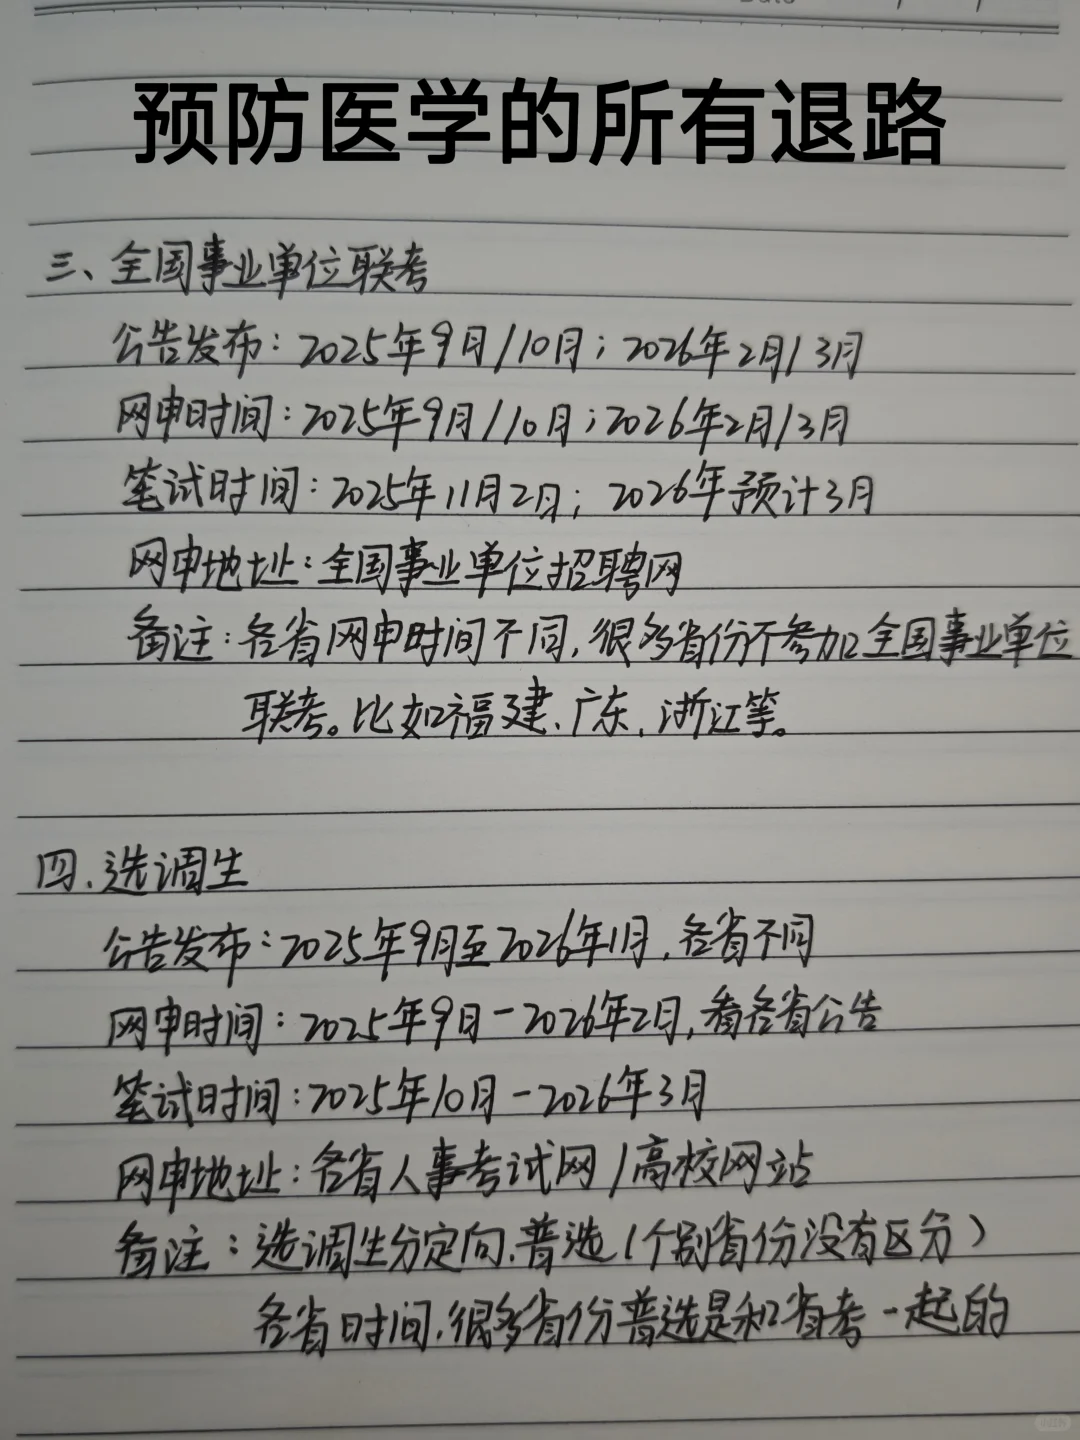 预防医学的所有退路
三、全国事业单位联考
公告发布：2025年9月/10月；2026年2月/3月
网申时间：2025年9月/10月；2026年2月/3月
笔试时间：2025年11月2日；2026年预计3月
网申地址：全国事业单位招聘网
备注：各省网申时间不同，很多省份不参加全国事业单位
联考。比如福建、广东、浙江等。
四、选调生
公告发布：2025年9月至2026年1月，各省不同
网申时间：2025年9月-2026年2月，看各省公告
笔试时间：2025年10月-2026年3月
网申地址：各省人事考试网/高校网站
备注：选调生分定向、普选（个别省份没有区分）
各省时间，很多省份普选是和省考一起的
小红书